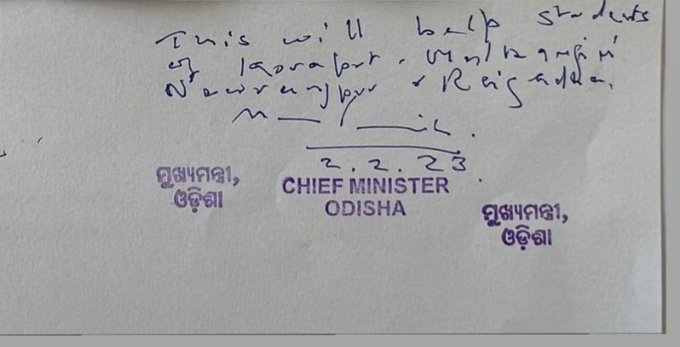 This will help students
of Koraput, Malkangiri
Nawrangpur & Raigadha.
2.2.23.
ମୁଖ୍ୟମନ୍ତ୍ରୀ,
ଓଡ଼ିଶା
CHIEF MINISTER
ODISHA
ମୁଖ୍ୟମନ୍ତ୍ରୀ,
ଓଡ଼ିଶା